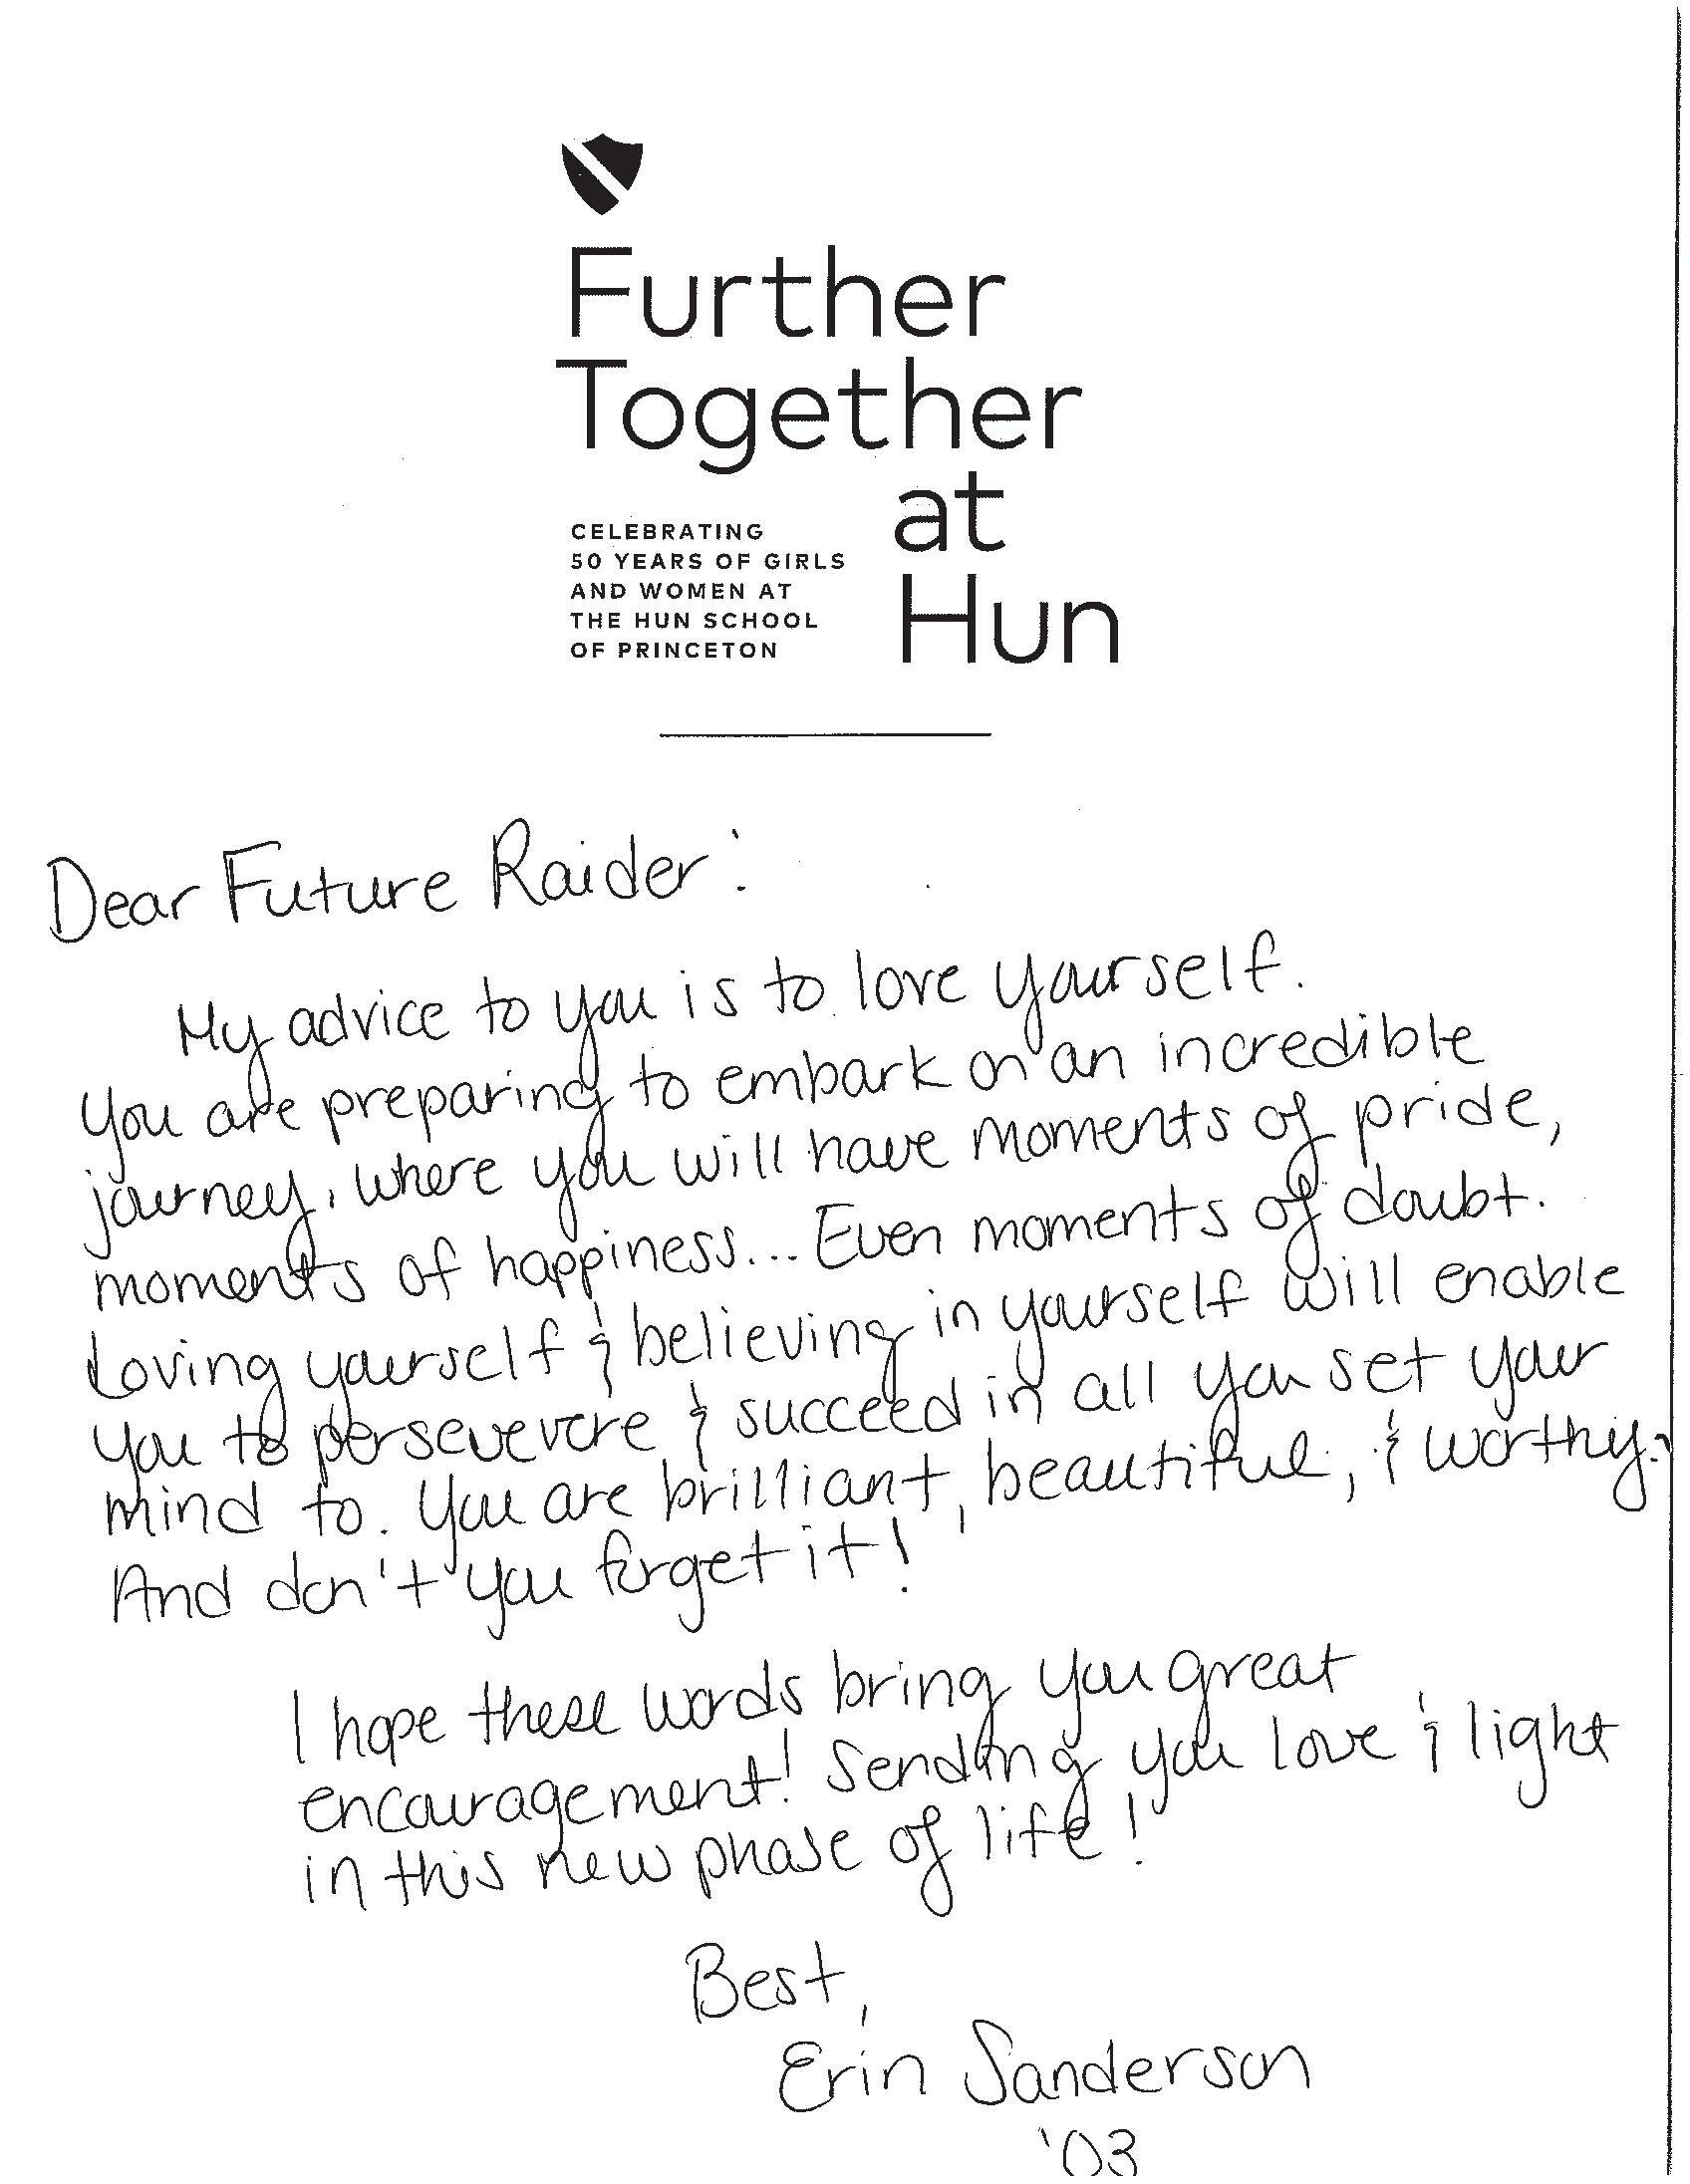 Further
Together
at
Hun
CELEBRATING
50 YEARS OF GIRLS
AND WOMEN AT
THE HUN SCHOOL
OF PRINCETON
Dear Future Raider:
My advice to you is to love yourself.
You are preparing to embark on an incredible
journey, where you will have moments of pride,
moments of happiness... Even moments of doubt.
Loving yourself & believing in yourself will enable
you to persevevere & succeed in all you set your
mind to. You are brilliant, beautiful, & worthy.
And don't you forget it!
I hope these words bring you great
encouragement! Sending you love & light
in this new phase of life!
Best,
Erin Sanderson
'03